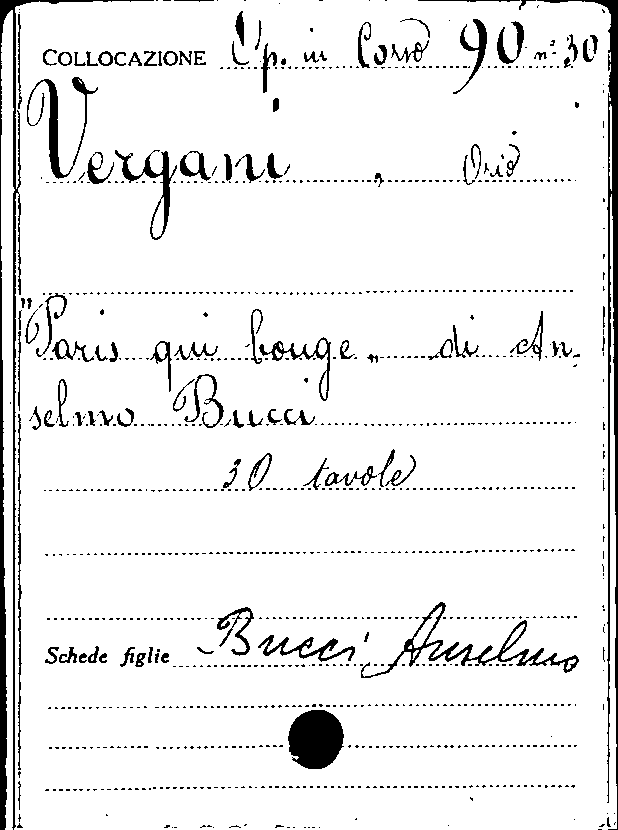 COLLOCAZIONE Op. in Corso 90 n° 30
Vergani, Orio
"Paris qui bouge„ di An-
selmo Bucci
30 tavole
Schede figlie Bucci Anselmo